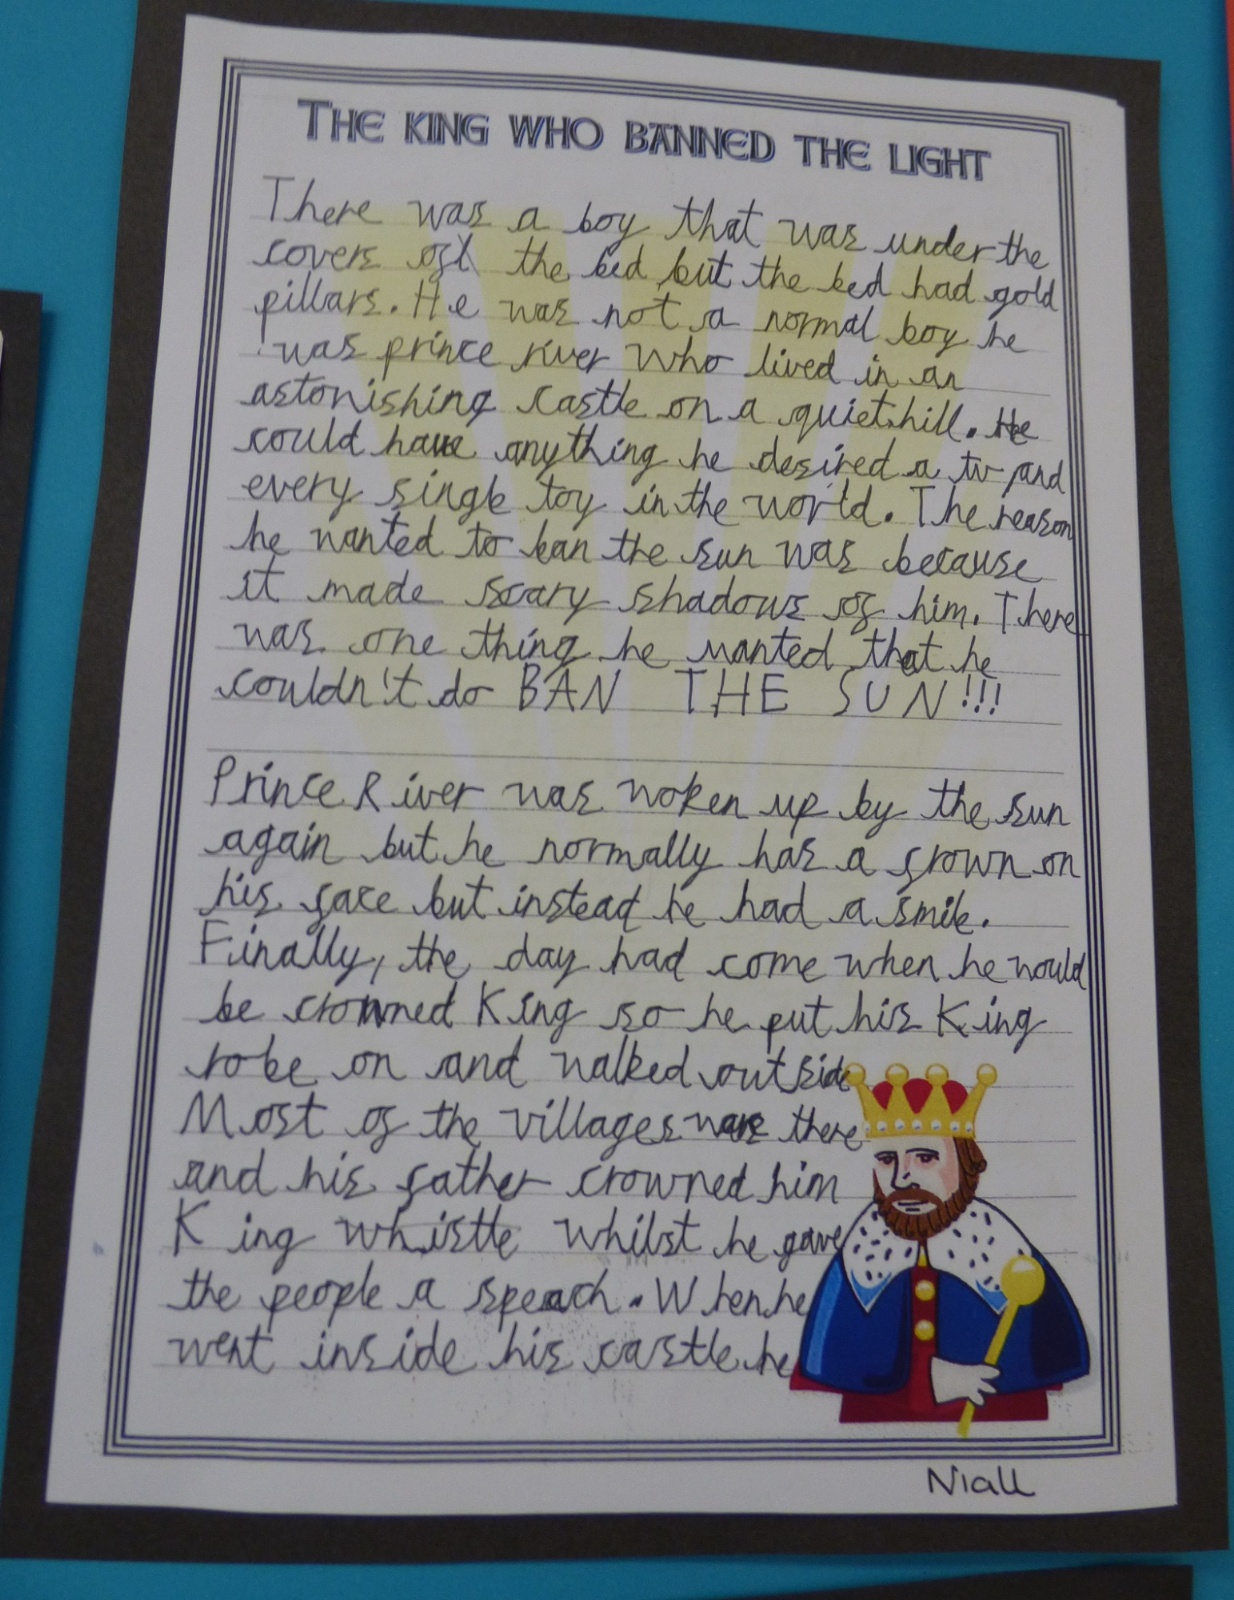 THE KING WHO BANNED THE LIGHT
There was a boy that was under the
covers of the bed but the bed had gold
pillars. He was not a normal boy he
was prince river who lived in an
astonishing castle on a quiet hill. He
could have anything he desired a tv and
every single toy in the world. The reason
he wanted to ban the sun was because
it made scary shadows of him. There
was one thing he wanted that he
couldn't do BAN THE SUN!!!
Prince River was woken up by the sun
again but he normally has a frown on
his face but instead he had a smile.
Finally, the day had come when he would
be crowned King so he put his King
robe on and walked outside
Most of the villages were there
and his father crowned him
King whistle whilst he gave
the people a speach. When he
went inside his castle he
Niall